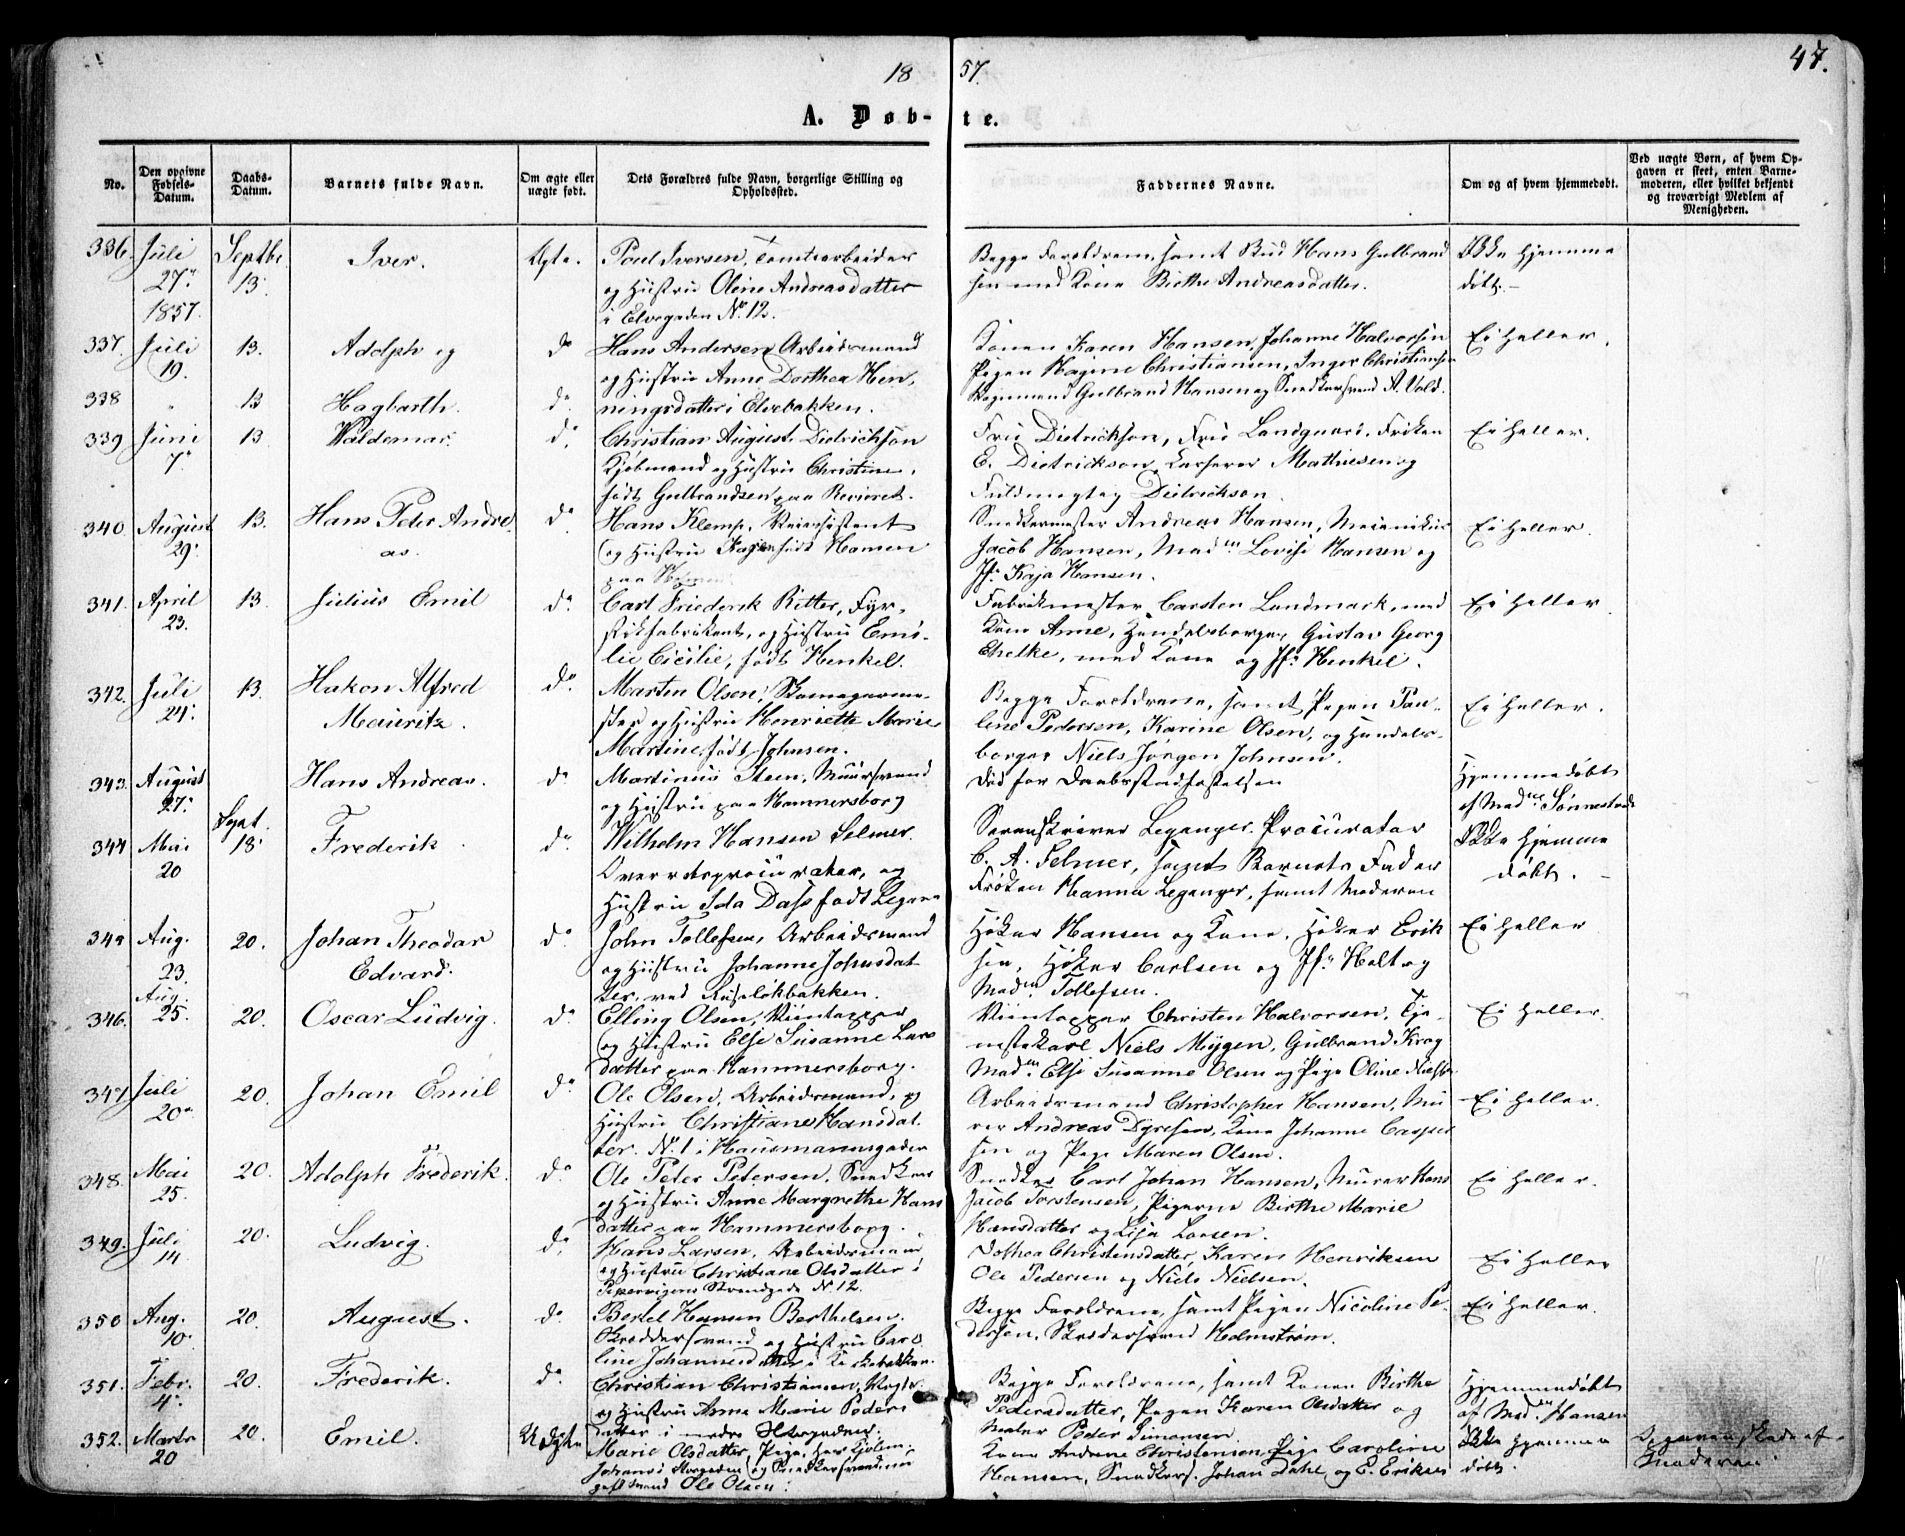 18 57. 47.
A. Døb- te.
No.
Den opgivne Fødsels-Datum.
Daabs-Datum.
Barnets fulde Navn.
Om ægte eller uægte født.
Dets Forældres fulde Navn, borgerlige Stilling og Opholdssted.
Faddernes Navne.
Om og af hvem hjemmedøbt.
Ved uægte Børn, af hvem Opgaven er skeet, enten Barnemoderen, eller hvilket bekjendt og troværdigt Medlem af Menigheden.
336. Juli 27. 1857. Septbr. 13. Iver. Ægte.
Poul Iversen, Tomtearbeider
og Hustru Oline Andreasdatter
i Elvegaden No. 12.
Begge Forældrene, samt Bud Hans Gulbrand
sen med Kone Birthe Andreasdatter.
Ikke hjemme
døbt.
337. Juli 19. 13. Adolph og do
Hans Andersen, Arbeidsmand
og Hustru Anne Dorthea Hen
Konen Karen Hansen, Johanne Halvorsen
Pigen Hagine Christiansen, Inger Christiansen
Ei heller.
338 " 13 Hagbarth. do
ningsdatter i Elvebakken.
Gulbrand Hansen og Snedkersvend A. Vold.
339 Juni 7. 13 Waldemar. do
Christian August Dietrichson
Kjøbmand og Hustru Christine,
født Gulbrandsen paa Revieret.
Fru Dietrichson, Fru Landgaard, Frøken
E. Dietrickson, Kasserer Mathiesen og
Fuldmægtig Dietrickson.
Ei heller.
340 August 29. 13. Hans Peter Andre
as. do
Hans Klemp, Veiassistent
og Hustru født Hansen
paa
Snedkermester Andreas Hansen, Mechanikus
Jacob Hansen, Madm. Lovise Hansen og
Jfr. Kaja Hansen.
Ei heller.
341. April 23. 13. Julius Emil do
Carl Friederik Ritter, Fyr-
stikfabrikant, og Hustru Emi-
lie Cicilie, født Henkel.
Fabrikmester Carsten Landmark, med
Kone Anne, Handelsborger Gustav Georg
Thelke, med Kone og Jfr. Henkel.
Ei heller.
342. Juli 24. 13. Hakon Alfred
Mauritz. do
Marten Olsen, Skomagerme-
ster og Hustru Henriette Marie
Martine født Johnsen.
Begge Forældrene, samt Pigen Pau-
line Pedersen, Karine Olsen, og Handels-
borger Niels Jørgen Johnsen.
Ei heller.
343. August 27. Hans Andreas. do
Martinus Steen, Muursvend
og Hustru paa Hammersborg
Død før Daabsstadfæstelsen
Hjemmedøbt
af Madme. Sønnesteds
344 Mai 20 Sept. 18 Frederik. do
Wilhelm Hansen Selmer.
Overretsprocurator, og
Hustru Ida Dass født Legan
Sorenskriver Leganger. Procurator
C. A. Selmer, samt Barnets Fader
Frøken Hanna Leganger, samt Moderen
Ikke hjemme
døbt.
345 Aug. 23. 20. Johan Theodor
Edvard. do
John Tollefsen, Arbeidsmand
og Hustru Johanne Johnsdat
ter, ved Ruseløkbakken.
Høker Hansen og Kone, Høker Erik
sen, Høker Carlsen og Jfr. Holt og
Madm. Tollefsen.
Ei heller
346. Aug. 25. 20. Oscar Ludvig. do
Elling Olsen, Viintapper
og Hustru Else Susanne Lars
datter paa Hammersborg.
Viintapper Christen Halvorsen, Tje-
nestekarl Niels Mygen, Gulbrand Krog
Madm. Else Susanne Olsen og Pige Oline Nielsen
Ei heller.
347 Juli 20. 20. Johan Emil do
Ole Olsen, Arbeidsmand, og
Hustru Christiane Hansdat
ter. N. 1 i Hausmannsgaden
Arbeidsmand Christopher Hansen, Mu
rer Andreas Dyresen, Kone Johanne Casper
sen og Pige Maren Olsen.
Ei heller.
348. Mai 25. 20. Adolph Frederik. do
Ole Peter Petersen, Snedker
og Hustru Anne Margrethe Hans
datter paa Hammersborg.
Snedker Carl Johan Hansen, Murer Hans
Jacob Torstensen, Pigerne Birthe Marie
Hansdatter og Lisa Larsen.
Ei heller.
349. Juli 14. 20. Ludvig. do
Hans Larsen, Arbeidsmand,
og Hustru Christiane Olsdatter i
Pipervigens Strandgade N. 12.
Dothea Christensdatter, Karen Henriksen
Ole Pedersen og Niels Nielsen.
Ei heller
350 Aug. 10. 20. August. do
Bertel Hansen Berthelsen.
Skreddersvend og Hustru Caro
line Johannesdatter i
Begge Forældrene, samt Pigen Nicoline Pe-
dersen, Skreddersvend Holmstrøm.
Ei heller.
351. Febr. 4. 20. Frederik. do
Christian Christiansen,
og Hustru Anne Marie Peders
datter i nedre
Begge Forældrene, samt Konen Birthe
Pedersdatter, Pigen Karen Olsdatter og
Maler Peder Simonsen.
Hjemmedøbt
af Madm. Hansen
352. Marts 20 20. Emil. Uægte
Marie Olsdatter, Pige,
Storgaden og Snedkersvend
Ole Olsen.
Kone Andrine Christensen, Pige Caroline
Hansen, Snedkers. Johan Dahl og E. Eriksen
Ikke hjemme
døbt.
Opgaven skede af
Moderen.